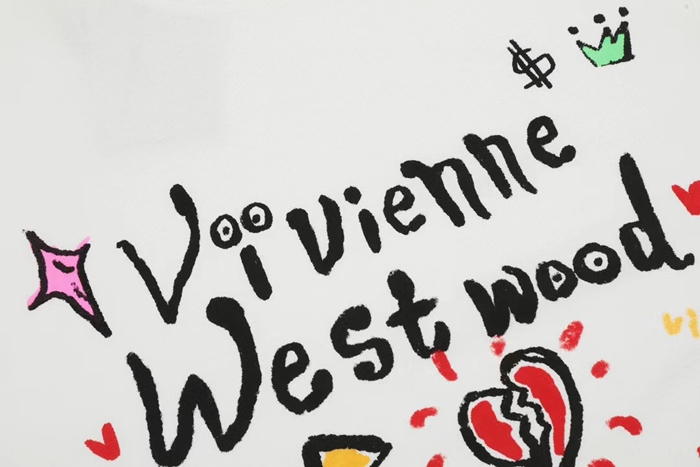 $
Vivienne
Westwood